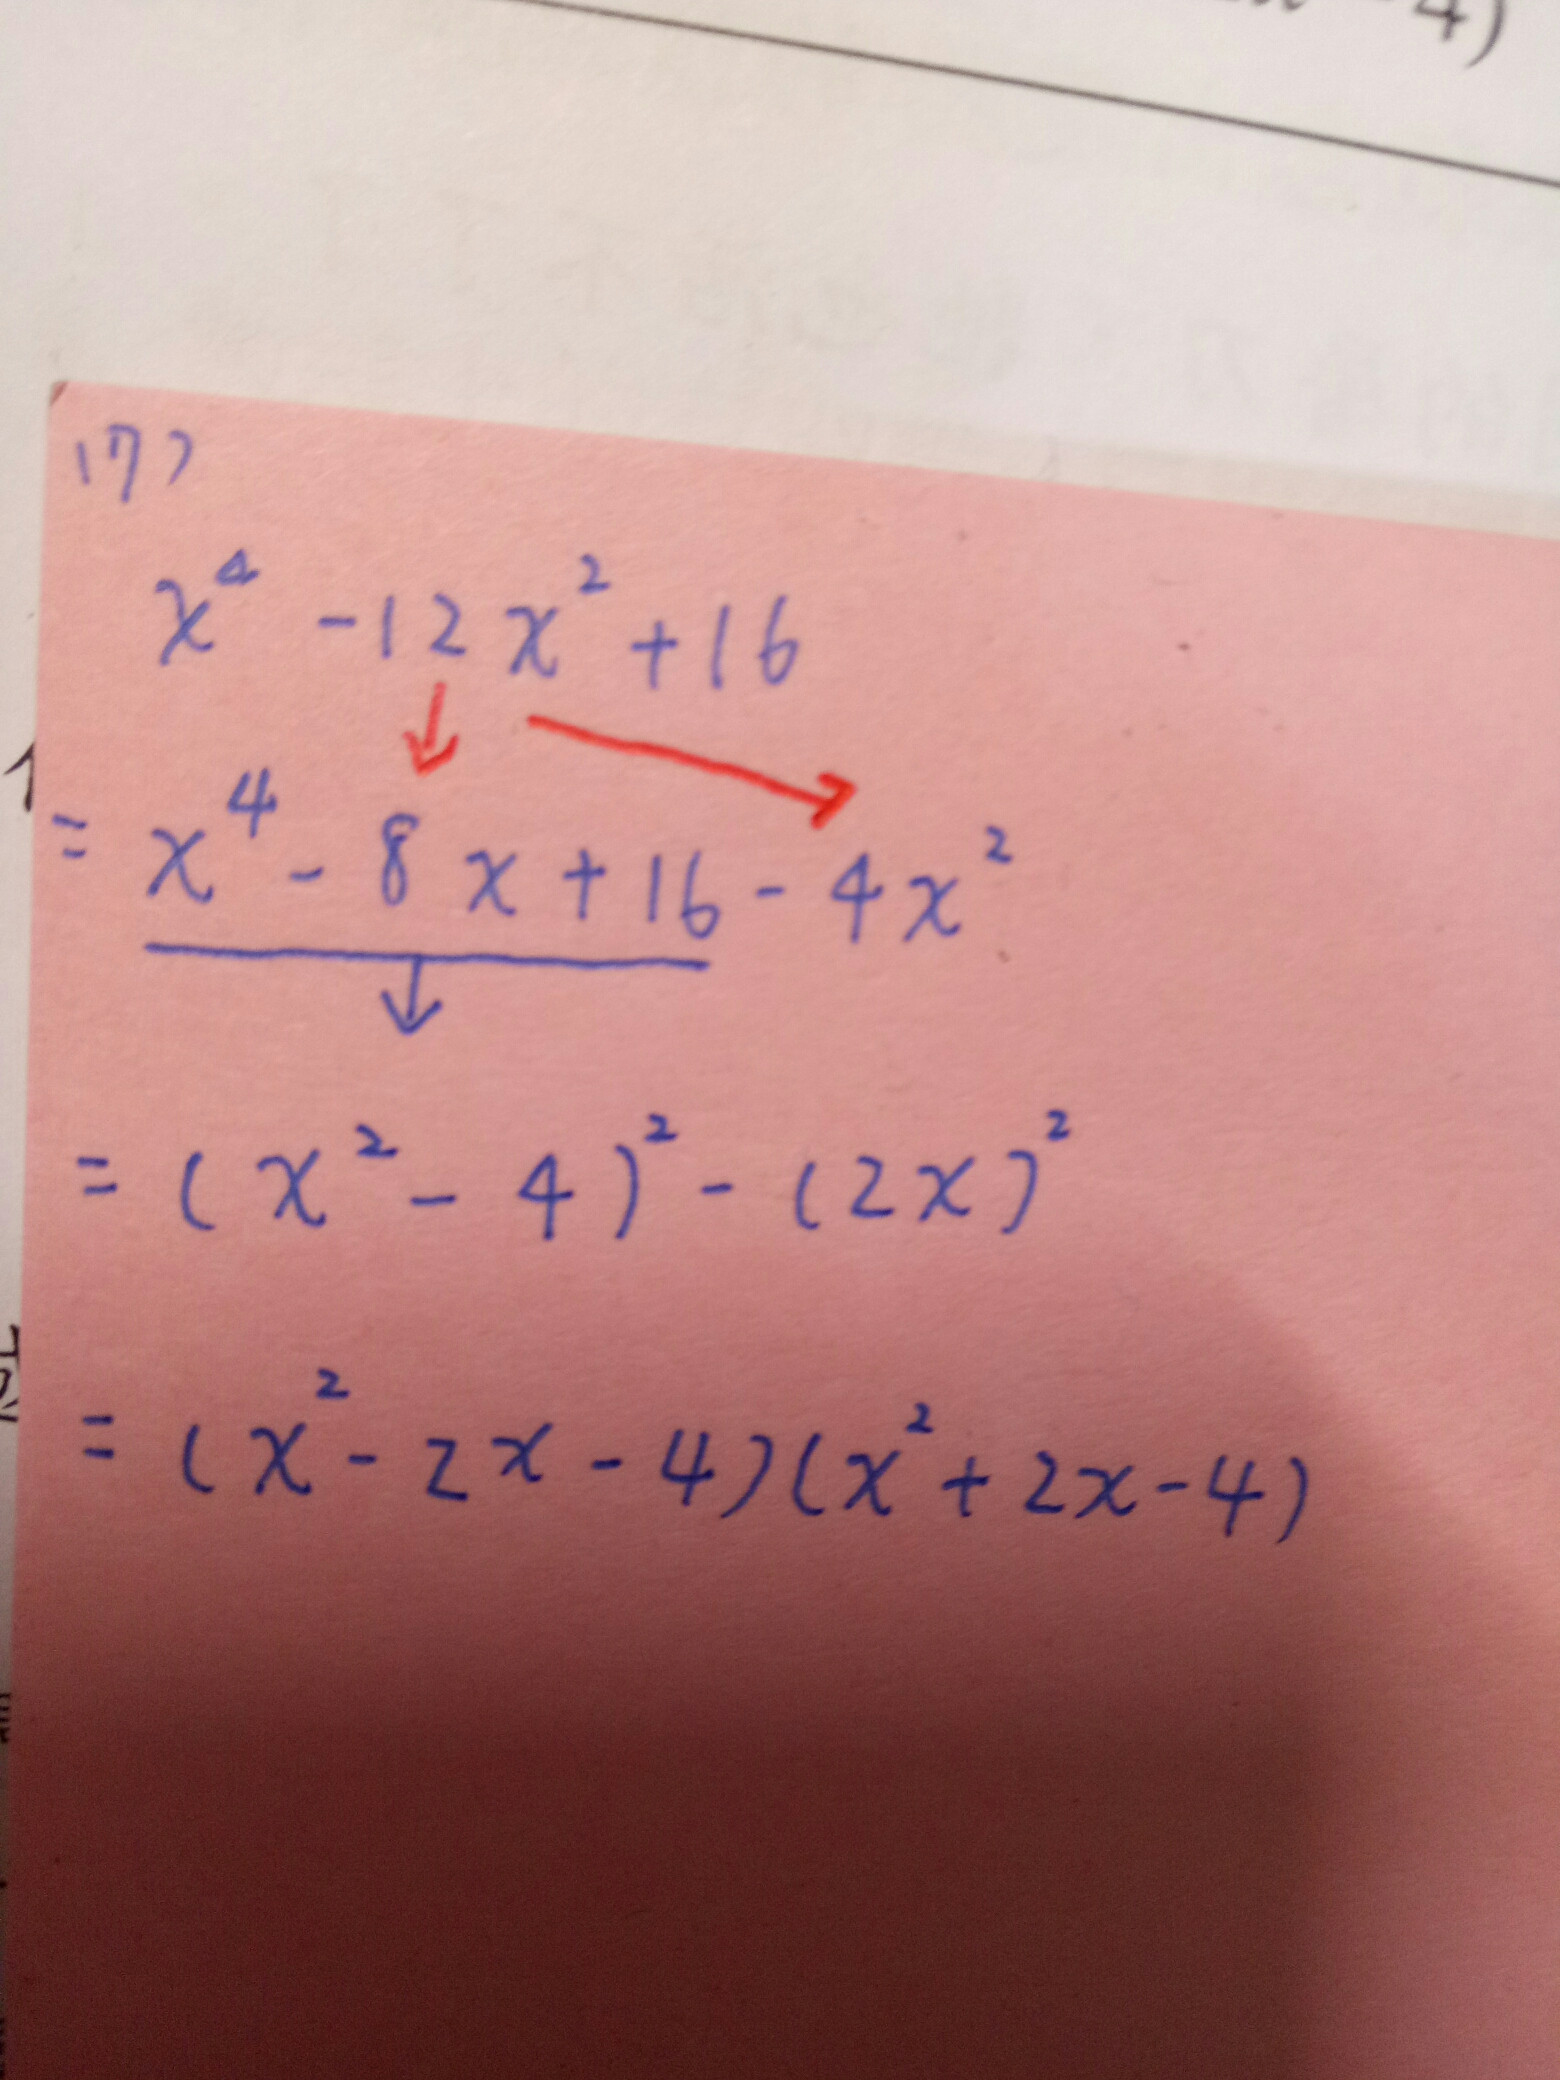 -4)
(7)
x⁴ -12x² +16
= x⁴ - 8x + 16 - 4x²
= (x² - 4)² - (2x)²
= (x² - 2x - 4)(x² + 2x - 4)